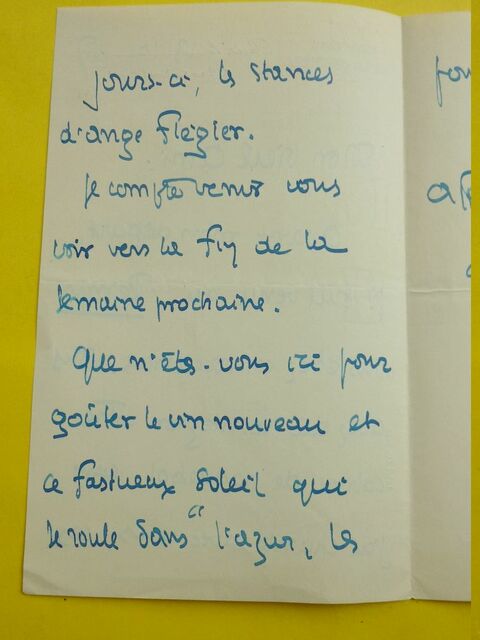 jours-ci, les stances
d'ange Flégier.
Je compte venir vous
voir vers la fin de la
semaine prochaine.
Que n'êtes-vous ici pour
goûter le vin nouveau et
ce fastueux soleil qui
se roule dans "l'azur, les
pou